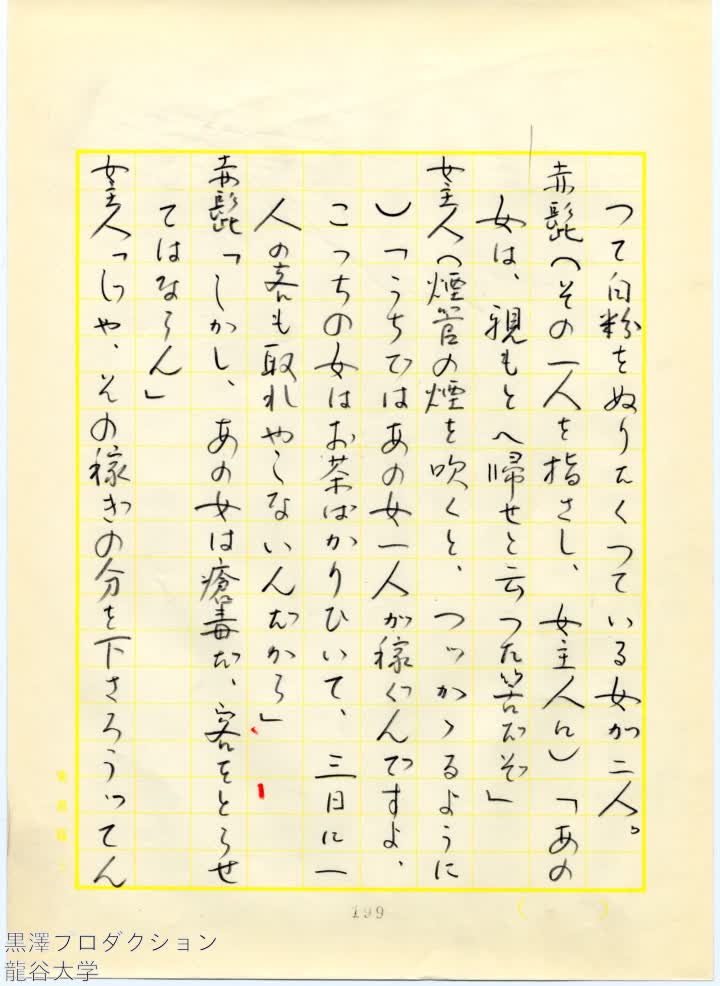 つて白粉をぬりたくつている女が二人。
赤髭(その一人を指さし、女主人に)「あの
女は、親もとへ帰せと云つた筈だぞ」
女主人(煙管の煙を吹くと、つッかゝるように
)「うちではあの女一人が稼ぐんですよ、
こつちの女はお茶ばかりひいて、三日に一
人の客も取れやしないんだから」
赤髭「しかし、あの女は瘡毒だ、客をとらせ
てはならん」
女主人「じや、その稼ぎの分を下さろうッてん
199
黒澤プロダクション
龍谷大学